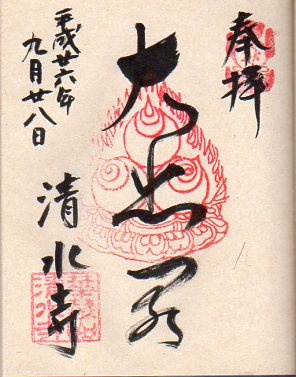 奉拝
大悲閣
平成廿六年
九月廿八日
清水寺